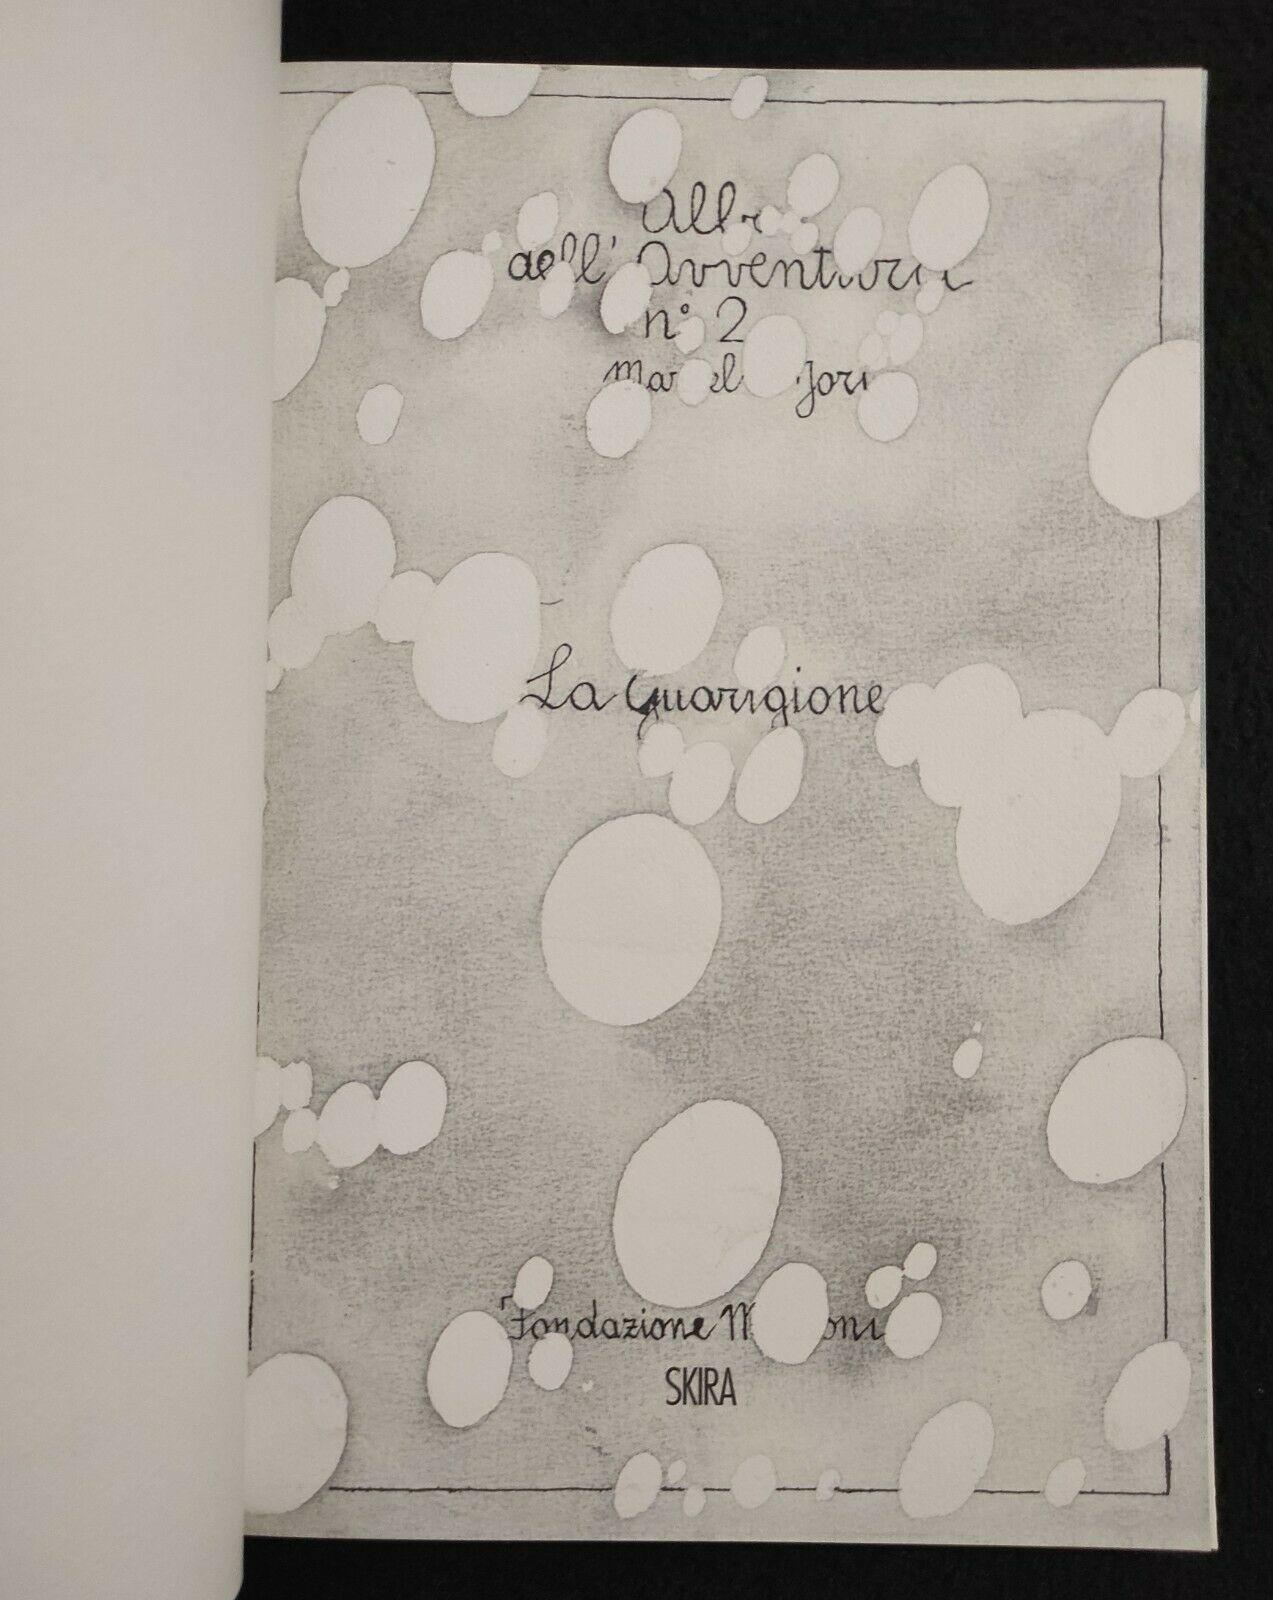 dell' Avventura
n° 2
Jori
La Guarigione
Fondazione
SKIRA